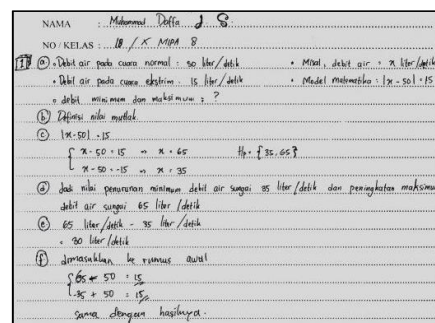 NAMA : Muhammad Daffa J S.
NO / KELAS : 18 / X MIPA 8
1 a • Debit air pada cuaca normal : 50 liter/detik • Misal, debit air = x liter/detik
• Debit air pada cuaca ekstrim : 15 liter/detik • Model matematika : |x - 50| = 15
• debit minimum dan maksimum : ?
b Definisi nilai mutlak.
c |x-50| = 15
x - 50 = 15 → x = 65 Hp = {35, 65}
x - 50 = -15 → x = 35
d Jadi nilai penurunan minimum debit air sungai 35 liter/detik dan peningkatan maksimu
debit air sungai 65 liter/detik
e 65 liter/detik - 35 liter/detik
= 30 liter/detik
f dimasukkan ke rumus awal
65 - 50 = 15
-35 + 50 = 15
sama dengan hasilnya.